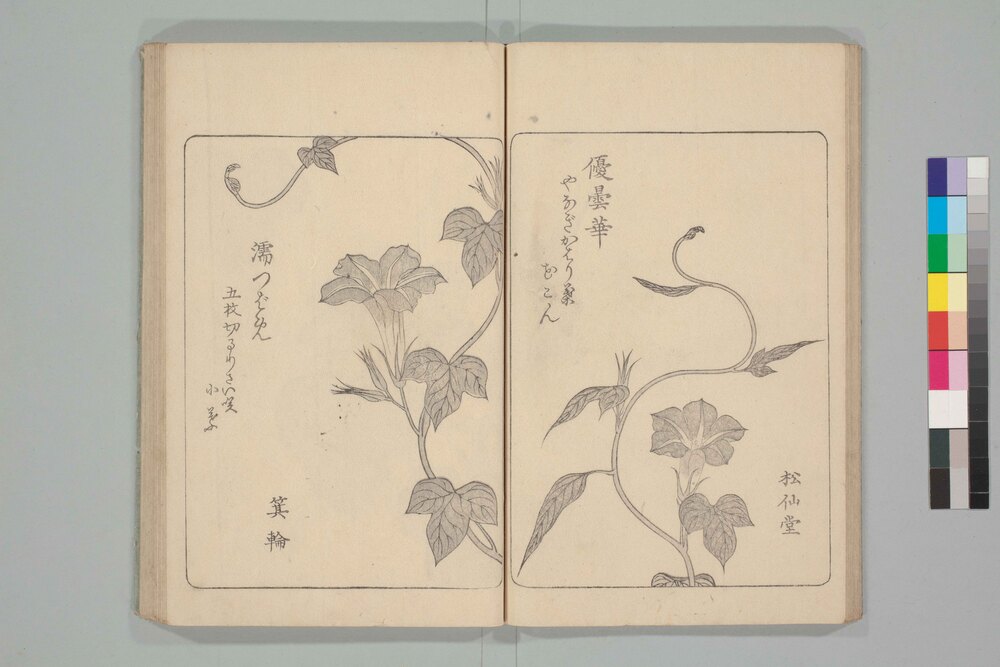 優曇華
やなぎかはり葉
むこん
松仙堂
濡つばめ
五枚切るりさい咲
小葉
箕輪